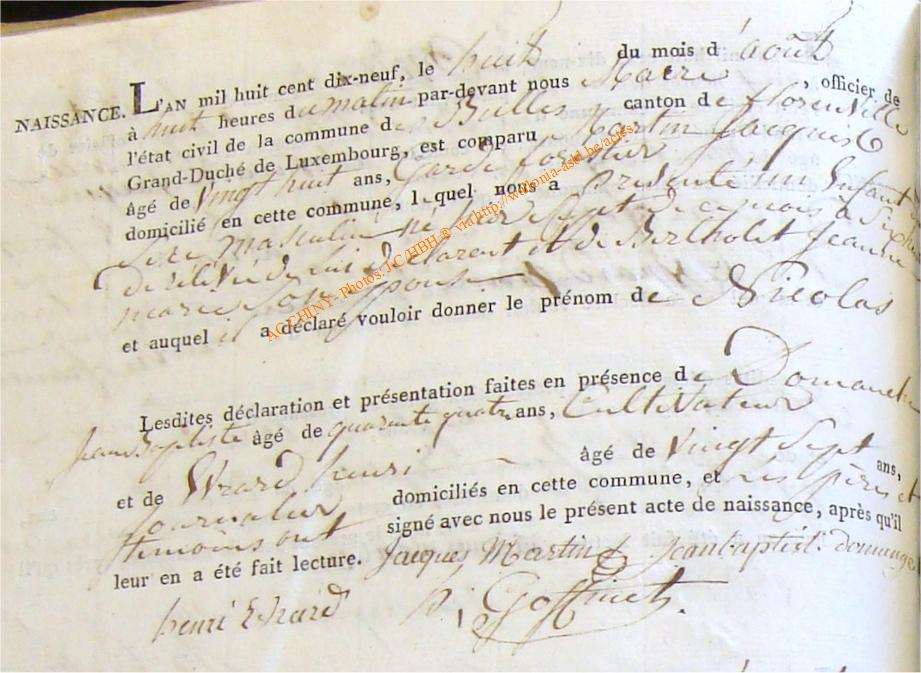 NAISSANCE. L'AN mil huit cent dix-neuf, le huit du mois d'août
à huit heures du matin par-devant nous Maire, officier de
l'état civil de la commune des Bulles, canton de florenville
Grand-Duché de Luxembourg, est comparu Martin Jacques
âgé de Vingt huit ans, Garde forestier
domicilié en cette commune, lequel nous a présenté un Enfant
Sexe masculin né hier le Sept de ce mois à Six heures
de relevée de lui déclarant et de Bertholet Jeanne
marie Son épouse
et auquel il a déclaré vouloir donner le prénom de Nicolas
Lesdites déclaration et présentation faites en présence de Domange
Jean Baptiste âgé de quarante quatre ans, Cultivateur
et de Evrard henri âgé de Vingt Sept ans,
Journalier domiciliés en cette commune, et les pères et
témoins ont signé avec nous le présent acte de naissance, après qu'il
leur en a été fait lecture. Jacques Martin Jeanbaptist. domange
henri Evrard P. Goffinet.
AGECHINY- Photos. J.C/HBH © via http://wallonia-asbl.be/actes/